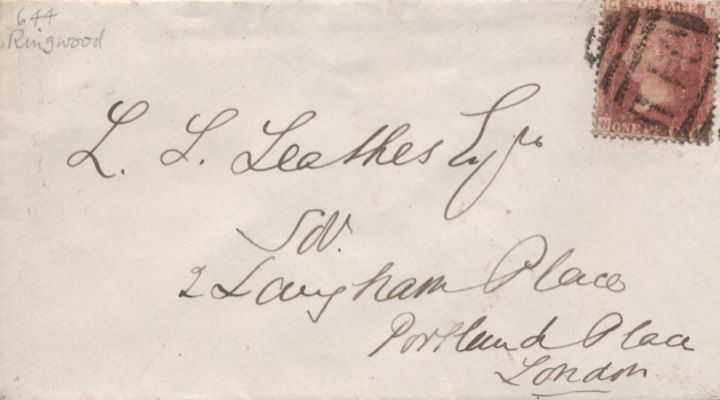 644
Ringwood
POSTAGE
ONE PE
L. L. Leathes Esqre
2 Langham Place
Portland Place
London